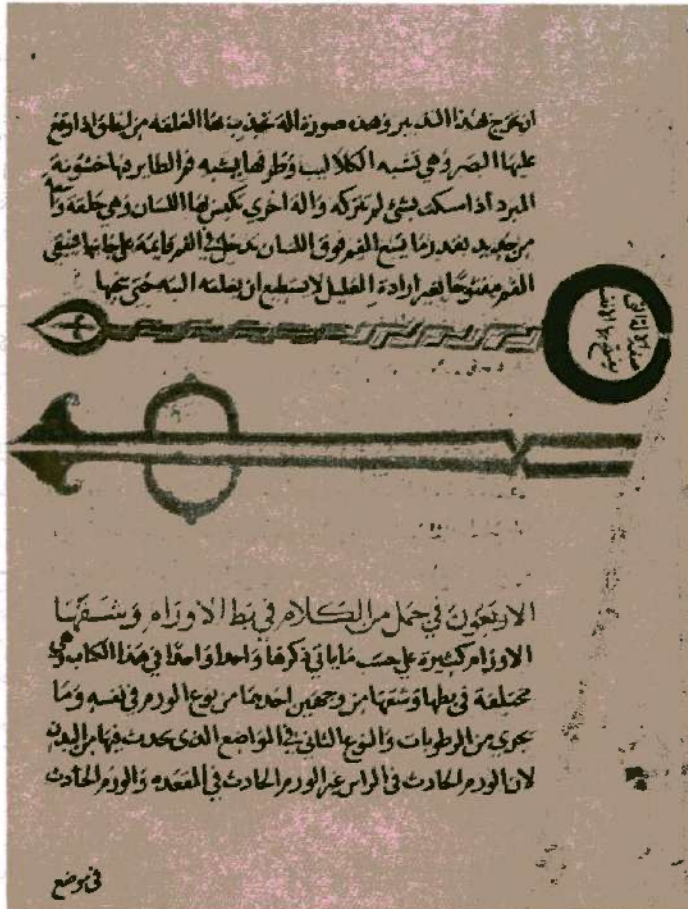 ان تخرج بهذا التدبير وهذه صورة الة تجذب بها العلقة من الحلق اذا وقع
عليها البصر وهي تشبه الكلاليب وطرفها يشبه فم الطاير فيها خشونة
المبرد اذا امسكت بشئ لم تتركه والة اخري تكبس بها اللسان وهي حلقة
من حديد بقدر ما يسع الفم فوق اللسان تدخل في الفم قايمة على جانبها فيبقى
الفم مفتوحا بغير ارادة العليل لا يستطيع ان يغلقه البتة حتى تخرجها
الاربعون في جمل من الكلام في بط الاورام وشقها
الاورام كثيرة على حسب ما ياتي ذكرها واحدا واحدا في هذا الكتاب وهي
مختلفة في بطها وشقها من وجهين احدهما من نوع الورم في نفسه وما
يحوي من الرطوبات والنوع الثاني في المواضع الذي يحدث فيها من البدن
لان الورم الحادث في الراس غير الورم الحادث في المقعدة والورم الحادث
في موضع